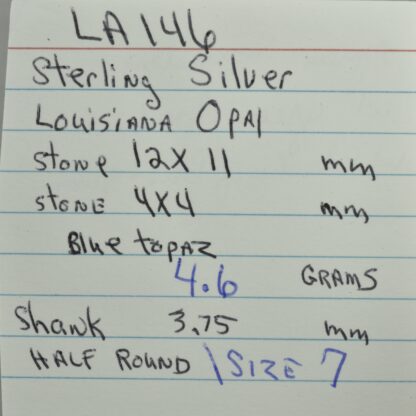 LA146
Sterling Silver
Louisiana Opal
stone 12x11 mm
stone 4x4 mm
Blue topaz
4.6 GRAMS
Shank 3.75 mm
HALF ROUND \ SIZE 7